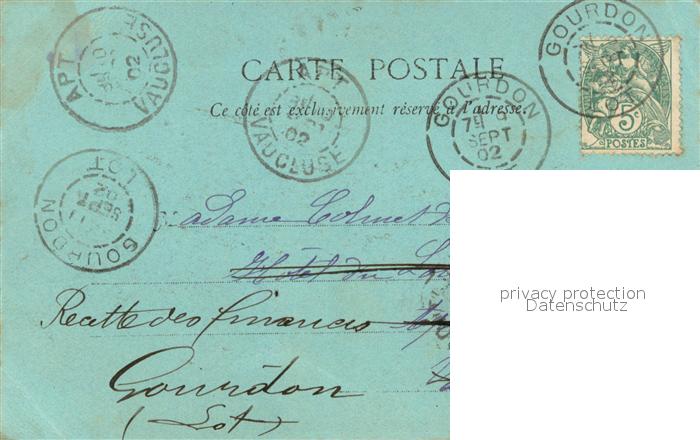 CARTE POSTALE
Ce côté est exclusivement réservé à l'adresse.
APT
VAUCLUSE
02
APT
VAUCLUSE
02
GOURDON
SEPT
02
GOURDON
5c
POSTES
GOURDON
LOT
SEPT
02
Madame
Hôtel du
Recette des finances
Gourdon
(Lot)
privacy protection
Datenschutz